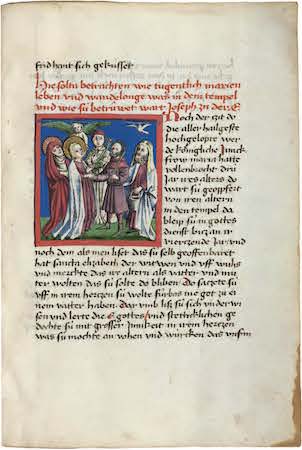 frid hant sich gekusset
Hie soltu betrachten wie tugentlich marien
leben vnd wandelonge was in dem tempel
vnd wie sú betrúwet wart Joseph zu der E
Noch der git do
die aller hailgeste
hochgelopte wer
de kónigliche Junck
frow maria hatte
vollenbrocht drú
Jar ires alters do
wart sú geopfert
von iren altern
in den tempel do
bleip sú in gottes
dienst bicz an ir
vierzende jar vnd
noch dem als men liset das sú selb geoffenbaret
hat Sanct elizabeth der witwen vnd vff wuhs
vnd merckte das ire altern als vatter vnd mu
ter wolten das sú solte do bliben Do saczete sú
vff in irem herczen sú wolte fúrbas me got zu ei
nem vatter haben dar vmb lies sú sich vnder wi
sen vnd lerte die E gottes vnd stetticklichen ge
dochte sú mit grosser Jnnikeit in irem herczen
was sú mochte an vohen vnd wúrcken das vnserm